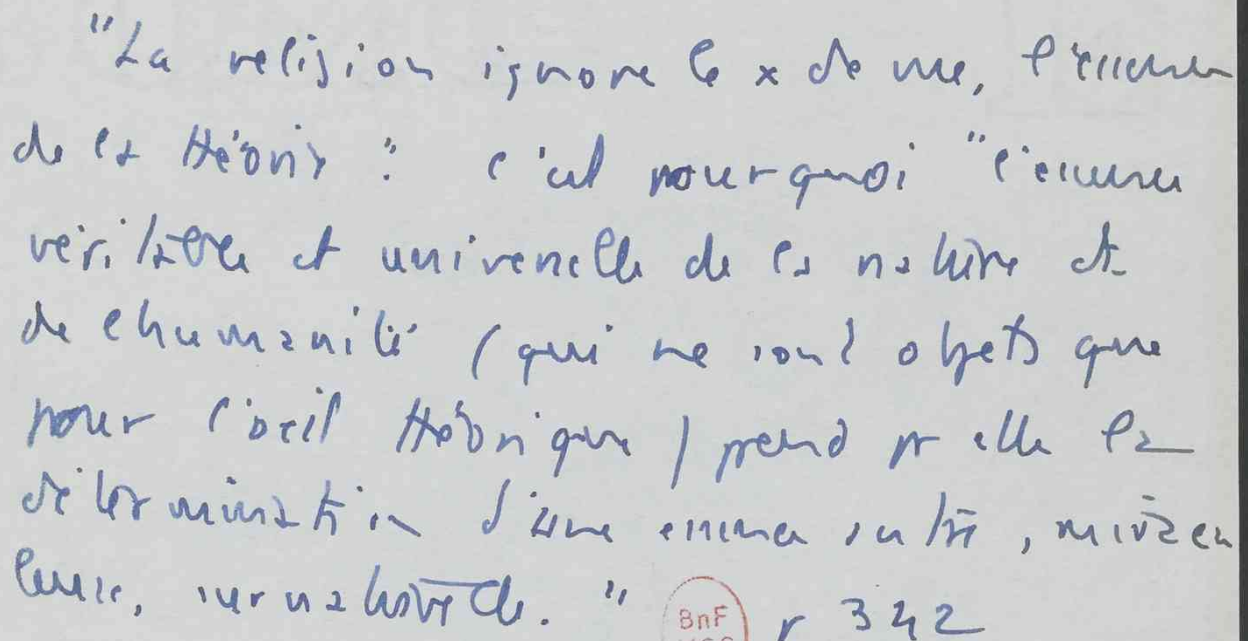 "La religion ignore le x de vue, l'essence
de la théorie : c'est pourquoi "l'essence
véritable et universelle de la nature et
de l'humanité (qui ne sont objets que
pour l'oeil théorique) prend pr elle la
détermination d'une essence autre, miracu
leuse, surnaturelle."
BnF
p 342